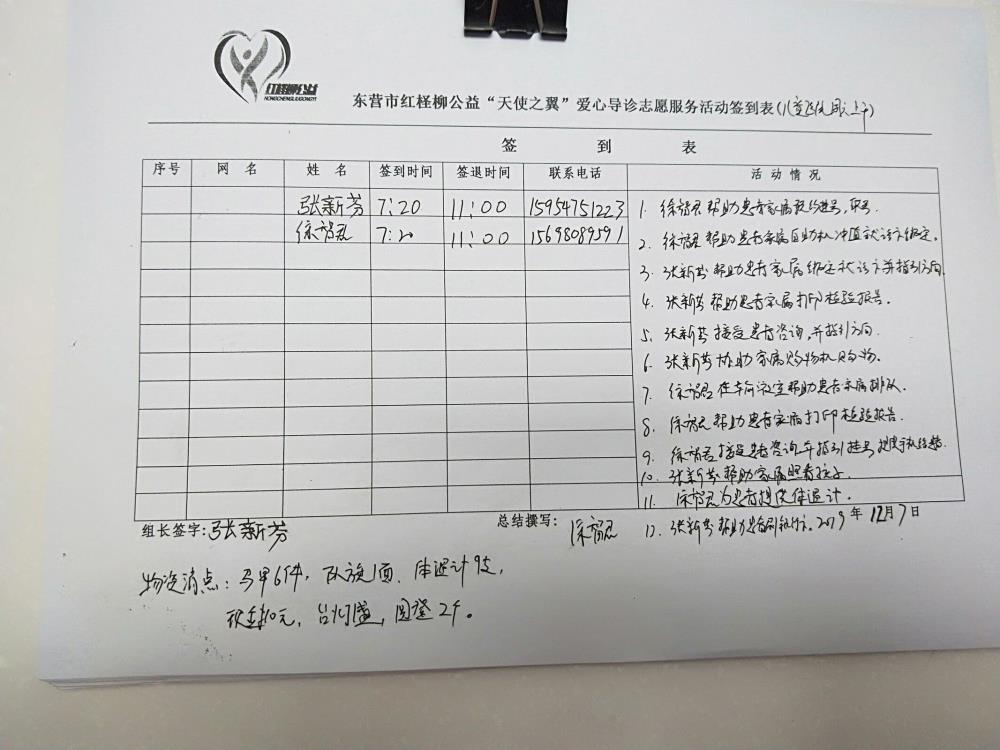 红柽柳公益
HONGCHENGLIUGONGYI
东营市红柽柳公益“天使之翼”爱心导诊志愿服务活动签到表(儿童医院周六上午)
签 到 表
序号 网 名 姓 名 签到时间 签退时间 联系电话 活 动 情 况
张新芬 7:20 11:00 15954751223
7:20 11:00 15698089591
1. 帮助患者家属预约挂号,取号.
2. 帮助患者家属自助机冲值就诊卡绑定.
3. 张新芬帮助患者家属绑定就诊卡并指引方向.
4. 张新芬帮助患者家属打印检验报告.
5. 张新芬接受患者咨询,并指引方向.
6. 张新芬协助家属购物机购物.
7. 在输液室帮助患者家属排队.
8. 帮助患者家属打印检验报告.
9. 接受患者咨询并指引挂号
10. 张新芬帮助家属照看孩子.
11. 为患者提供体温计.
组长签字:张新芬 总结撰写: 12. 张新芬帮助患者 2019年12月7日
物资清点:马甲6件,队旗1面、体温计9支,
现金10元,台灯1盏,圆凳2个。